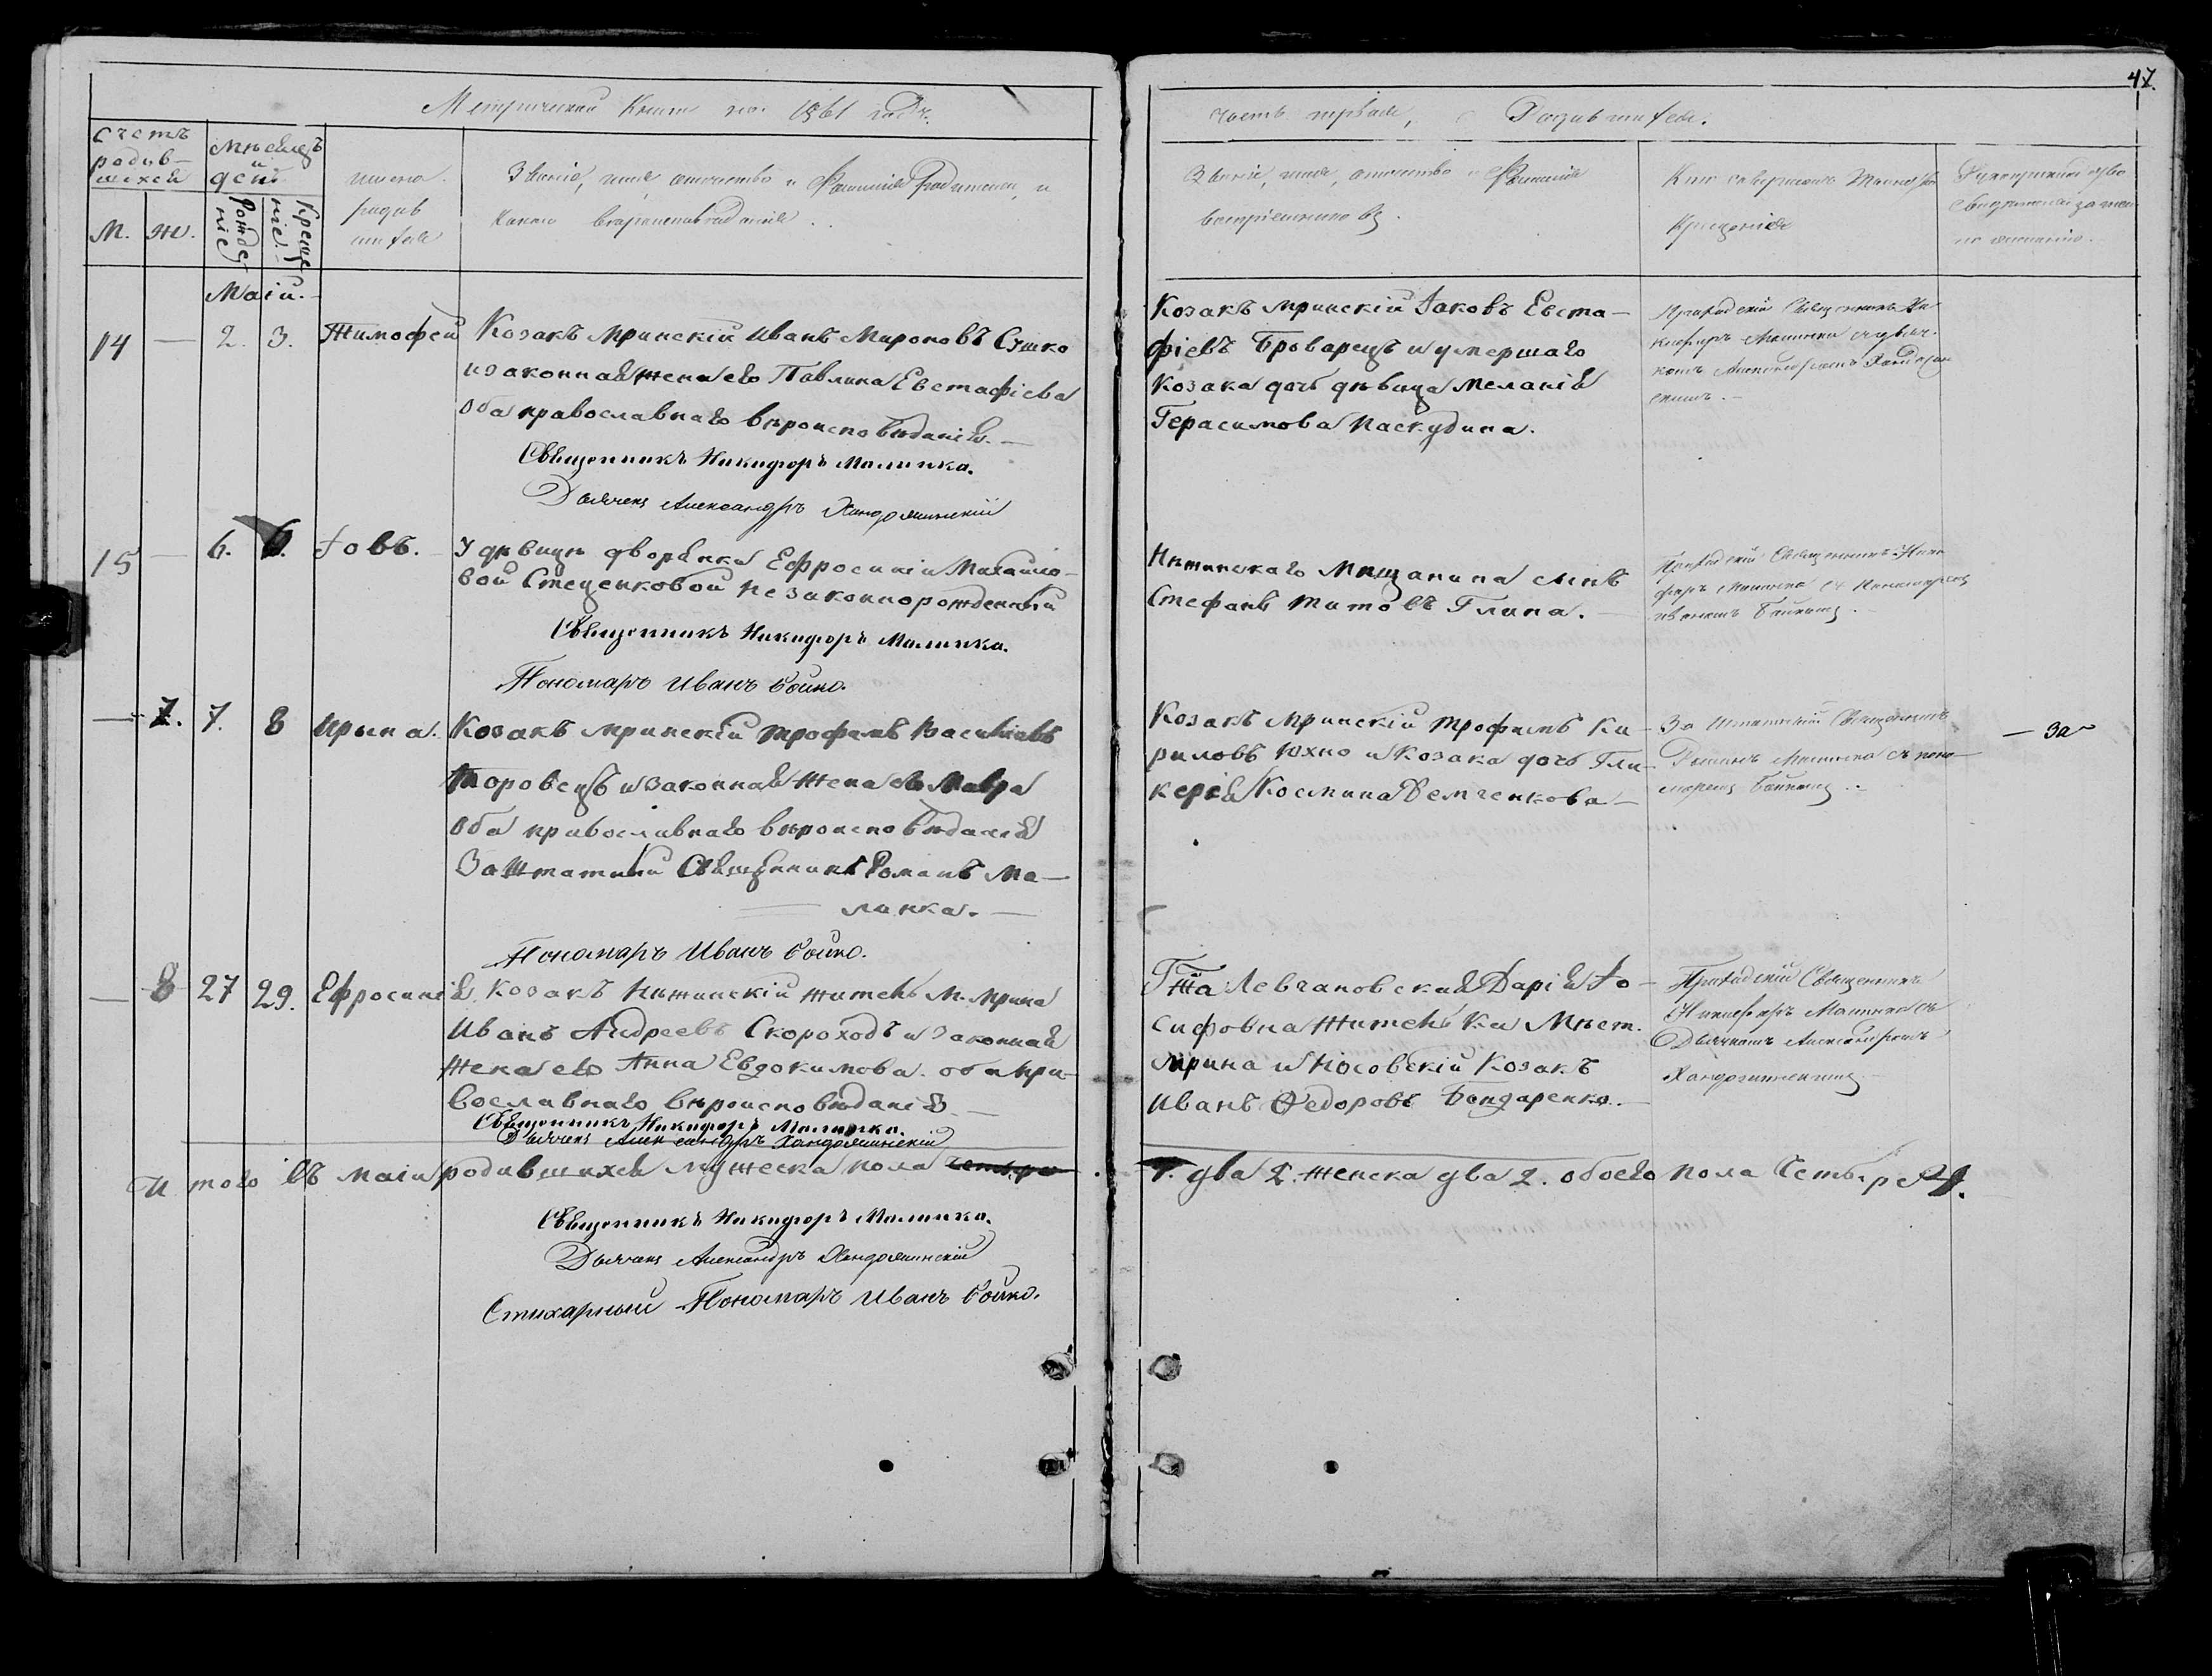 Метрической Книги на 1861 годъ.
Счетъ
родив-
шихся
Мѣсяцъ
и
день
имена
родив
шихся
Званіе, имя, отчество и Фамилія Родителей, и
какого вѣроисповѣданія.
М.
Ж.
Рожде
ніе
Креще
ніе
Маій.
14 — 2. 3. Тимофей
Козакъ Мринскій Иванъ Мироновъ Сушко
и законная жена его Павлина Евстафіева
Оба православнаго вѣроисповѣданія. —
Священникъ Никифоръ Малинка.
Дьячекъ Александръ
15 — 6. 6. Іовъ. —
У дѣвицы дворянки Ефросиніи Михайло-
вой Стеценковой незаконнорожденный
Священникъ Никифоръ Малинка.
Пономарь Иванъ Бойко.
— 7. 7. 8 Ирына.
Козакъ Мринскій Трофимъ Василіевъ
и законная жена его Мавра
Оба православнаго вѣроисповѣданія
Заштатный Священникъ Романъ Ма-
линка. —
Пономарь Иванъ Бойко.
— 8 27 29. Ефросинія.
Козакъ Нѣжинскій житель М. Мрина
Иванъ Андреевъ Скороходъ и законная
жена его Анна Евдокимова. оба пра-
вославнаго вѣроисповѣданія —
Священникъ Никифоръ Малинка.
Дьячекъ Александръ
И того въ маіи родившихся мужеска пола четыре
Священникъ Никифоръ Малинка.
Дьячекъ Александръ
Стихарный Пономарь Иванъ Бойко.
47.
часть первая, О Родившихся.
Званіе, имя, отчество и Фамилія
воспріемниковъ.
Кто совершалъ Таинство
Крещенія
Рукоприкладство
свидѣтелей записи
по желанію.
Козакъ Мринскій Іаковъ Евста-
фіевъ Броварецъ и умершаго
Козака дочь дѣвица Меланія
Герасимова Паскудина.
Приходскій Священникъ Ни
кифоръ Малинка съ дьяч-
комъ Александромъ
Нѣжинскаго Мѣщанина сынъ
Стефанъ Титовъ Глина. —
Приходскій Священникъ Ники
форъ Малинка съ Пономаремъ
Иваномъ Бойкомъ. —
Козакъ Мринскій Трофимъ Ки-
риловъ Юхно и Козака дочь Гли-
керія Космина Демченкова —
За Штатный Священникъ
Романъ Малинка съ поно-
маремъ Бойкомъ. —
— За
Г-жа Левчановская Дарія Іо-
сифовна Жителька Мѣст.
Мрина и Носовскій Козакъ
Иванъ Федоровъ Бондаренко. —
Приходскій Священникъ
Никифоръ Малинка съ
Дьячкомъ Александромъ
два 2. женска два 2. обоего пола Четыре 4.